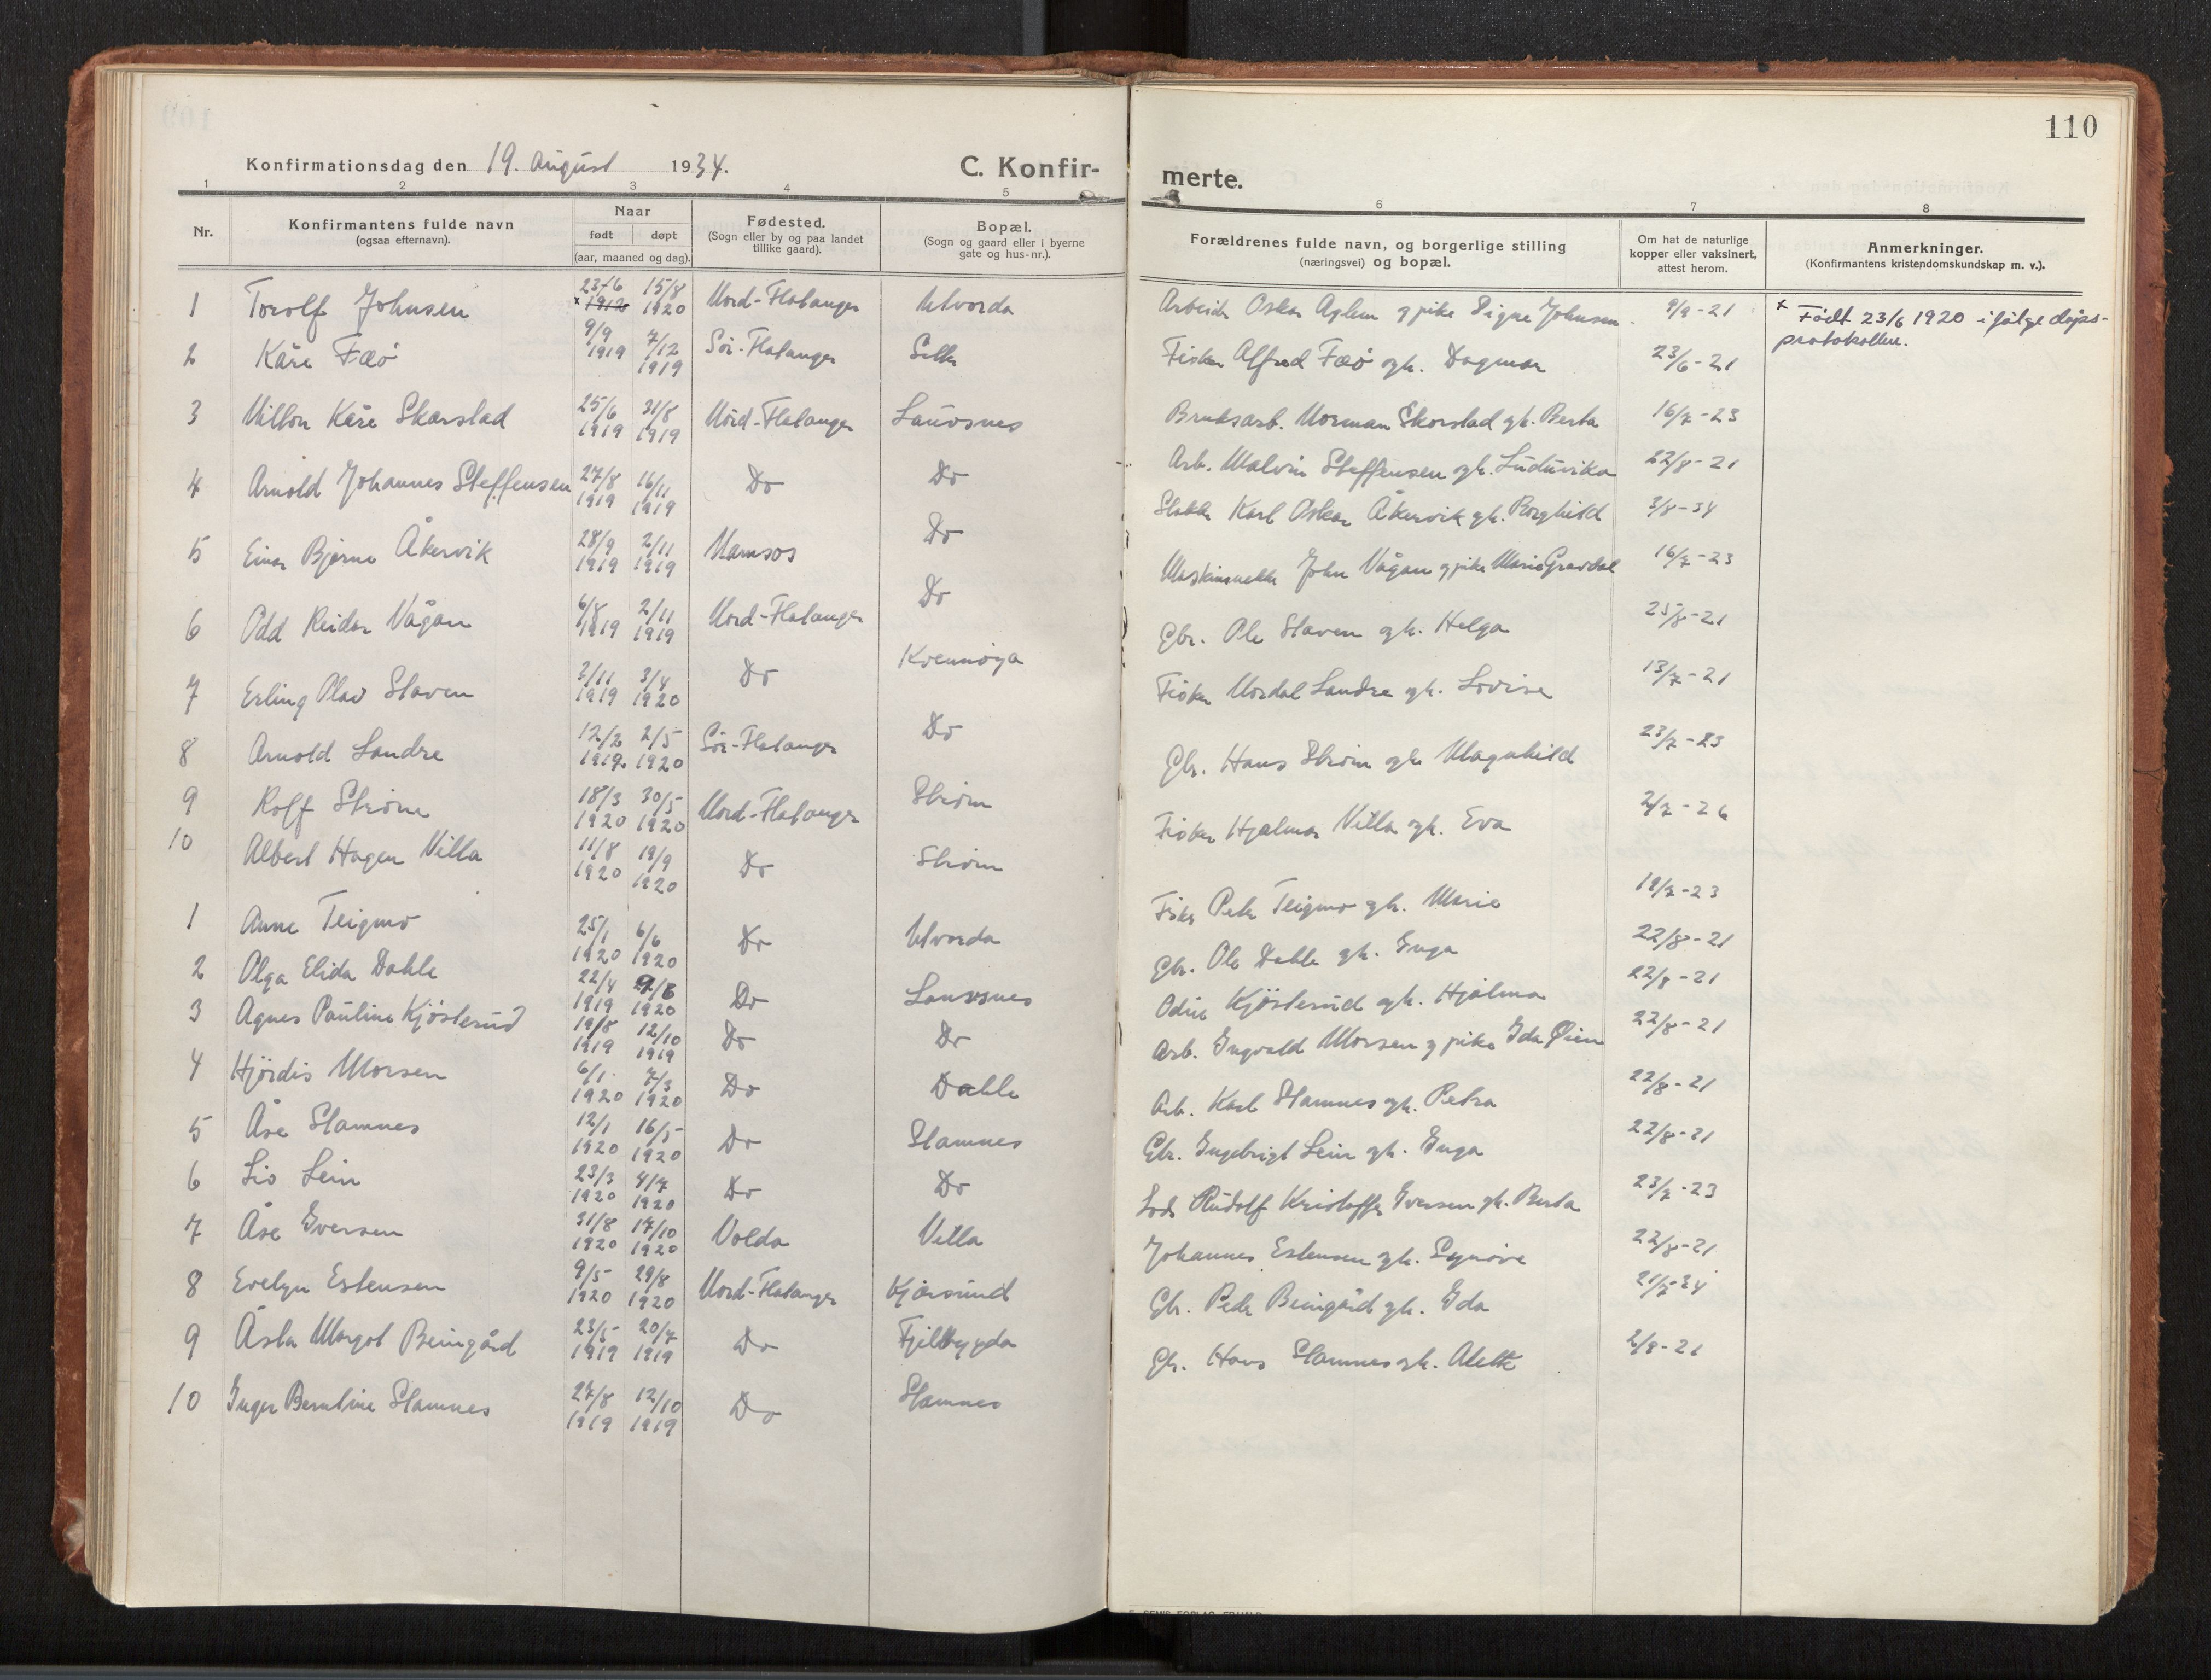 110
Konfirmationsdag den 19. August 1934.
C. Konfir-
merte.
1 2 3 4 5 6 7 8
Nr.
Konfirmantens fulde navn
(ogsaa efternavn).
Naar
født døpt
(aar, maaned og dag).
Fødested.
(Sogn eller by og paa landet
tillike gaard).
Bopæl.
(Sogn og gaard eller i byerne
gate og hus-nr.).
Forældrenes fulde navn, og borgerlige stilling
(næringsvei) og bopæl.
Om hat de naturlige
kopper eller vaksinert,
attest herom.
Anmerkninger.
(Konfirmantens kristendomskundskap m. v.).
1 Torolf Johnsen 23/6 x 1912 15/8 1920 Nord-Flatanger Utvorda Arbeider Oskar Aglen g pike Signe Johnsen 9/9-21 x Født 23/6 1920 ifølge dåps-
protokollen.
2 Kåre Fæø 9/9 1919 7/12 1919 Sør-Flatanger Fisker Alfred Fæø gh. Dagmar 23/6-21
3 Kåre Skorstad 25/6 1919 31/8 1919 Nord-Flatanger Lauvsnes Bruksarb. Norman Skorstad gh. Berta 16/7-23
4 Arnold Johannes Steffensen 27/8 1919 16/11 1919 Do Do Arb. Malvin Steffensen gh. Luduvika 22/8-21
5 Einar Bjarne Åkervik 28/9 1919 2/11 1919 Namsos Do Karl Oskar Åkervik gh. Borghild 3/8-34
6 Odd Reidar Vågan 6/8 1919 2/11 1919 Nord-Flatanger Do John Vågan g pike Marie Gravdal 16/7-23
7 Erling Olav Staven 3/11 1919 3/4 1920 Do Kvennøya Gbr. Ole Staven gh. Helga 25/8-21
8 Arnold Landre 12/2 1919. 2/5 1920 Sør-Flatanger Do Fisker Nordal Landre gh. Lovise 13/7-21
9 Rolf Strøm 18/3 1920 30/5 1920 Nord-Flatanger Strøm Gbr. Hans Strøm gh Magnhild 23/7-23
10 Albert Hagen Villa 11/8 1920 19/9 1920 Do Strøm Fisker Hjalmar Villa gh. Eva 2/7-26
1 Anne Teigmo 25/1 1920 6/6 1920 Do Utvorda Fisker Peter Teigmo gh. Marie 19/7-23
2 Olga Elida Dahle 22/4 1919 1920 Do Lauvsnes Gbr. Ole Dahle gh. Inga 22/8-21
3 Agnes Pauline Kjøsterud 19/8 1919 12/10 1919 Do Do Odin Kjøsterud gh. Hjalma 22/8-21
4 Hjørdis Morsen 6/1 1920 7/3 1920 Do Dahle Arb. Ingvald Morsen g pike Ida Øien 22/8-21
5 Åse Stamnes 12/1 1920 16/5 1920 Do Stamnes Arb. Karl Stamnes gh. Petra 22/8-21
6 Liv Lein 23/3 1920 4/7 1920 Do Do Gbr. Ingebrigt Lein gh. Inga 22/8-21
7 Åse Iversen 31/8 1920 17/10 1920 Volda Villa Rudolf Kristoffer Iversen gh. Berta 23/7-23
8 Evelyn Estensen 9/5 1920 29/8 1920 Nord-Flatanger Kjærsund Johannes Estensen gh. Synøve 22/8-21
9 Åsta Margot Beingård 23/5 1919 20/7 1919 Do Fjellbygda Gbr. Peder Beingård gh. Ida 21/7-34
10 Inger Berntine Stamnes 27/8 1919 12/10 1919 Do Stamnes Gbr. Hans Stamnes gh. Alette 2/9-21